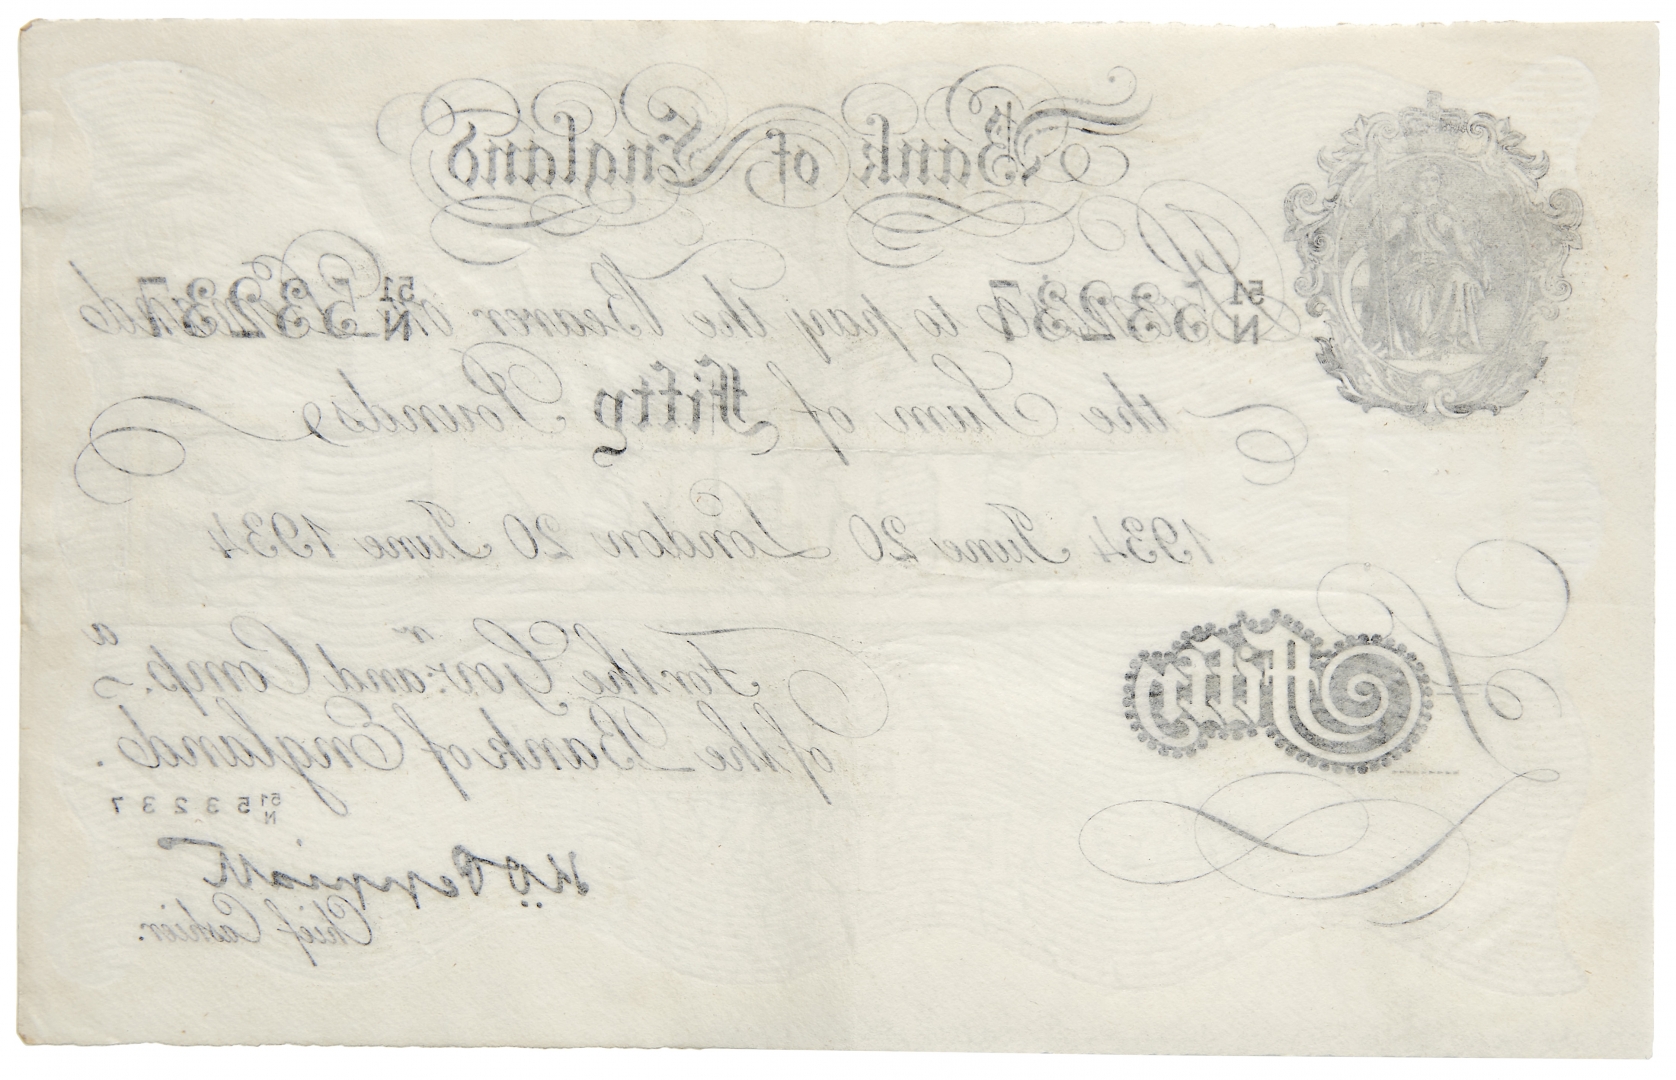 Bank of England
51
N 53237 to pay the Bearer on 51
N 53237
the Sum of Fifty Pounds
1934 June 20 London 20 June 1934
For the Gov.r and Comp.a
of the Bank of England.
51
N 53237
£ Fifty
Chief Cashier.